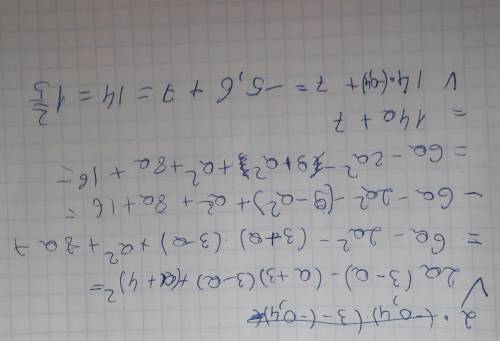 2 · (-0,4) (3-(-0,4)
√ 2a (3-a) - (a+3)(3-a) + (a+4)² =
= 6a - 2a² - (3+a) · (3-a) + a² + 8a +
- 6a - 2a² - (9-a²) + a² + 8a + 16 =
= 6a - 2a² - 9 + a² + a² + 8a + 16 =
= 14a + 7
√ 14 · (-0,4) + 7 = -5,6 + 7 = 14 = 1 2/5